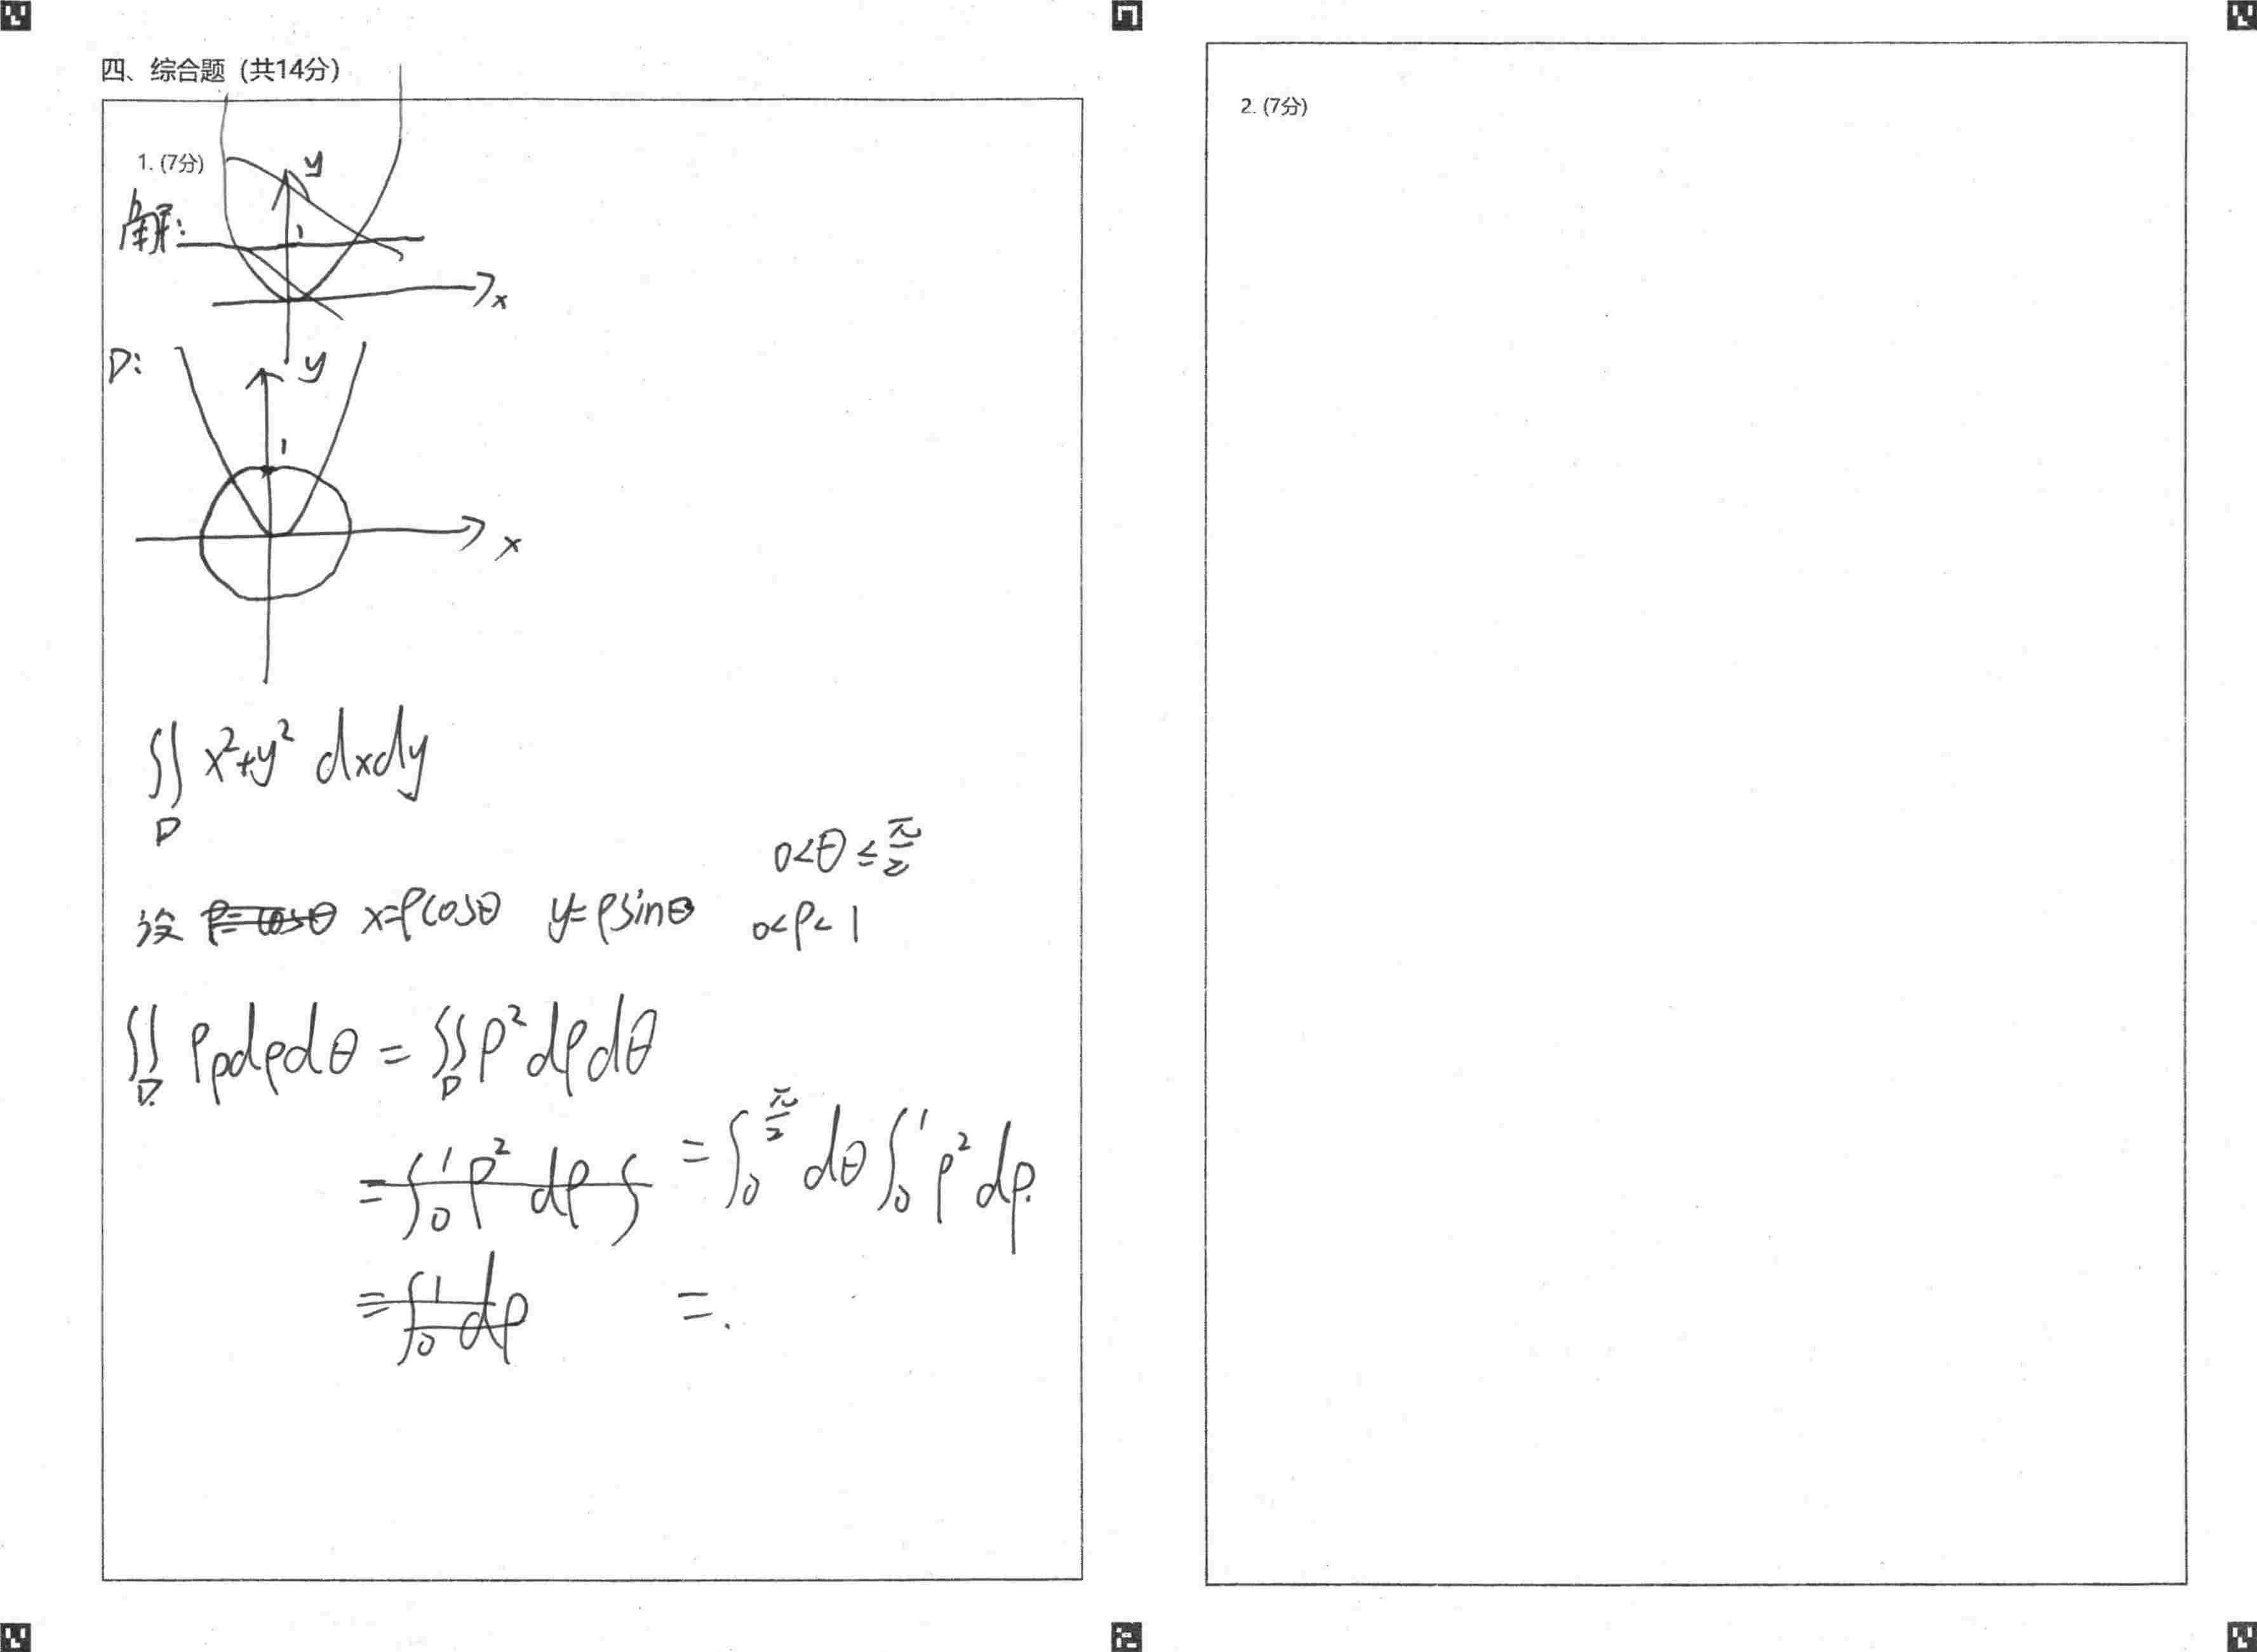 四、综合题 (共14分)
1. (7分)
解:
y
1
x
D:
y
1
x
∬ x²+y² dxdy
D
0<θ≤π/2
设 ρ=cosθ x=ρcosθ y=ρsinθ 0<ρ<1
∬ ρρdρdθ = ∬ ρ² dρdθ
D D
=∫₀¹ρ² dρ ∫ = ∫₀^(π/2) dθ ∫₀¹ ρ² dρ.
=∫₀¹ dρ =.
2. (7分)